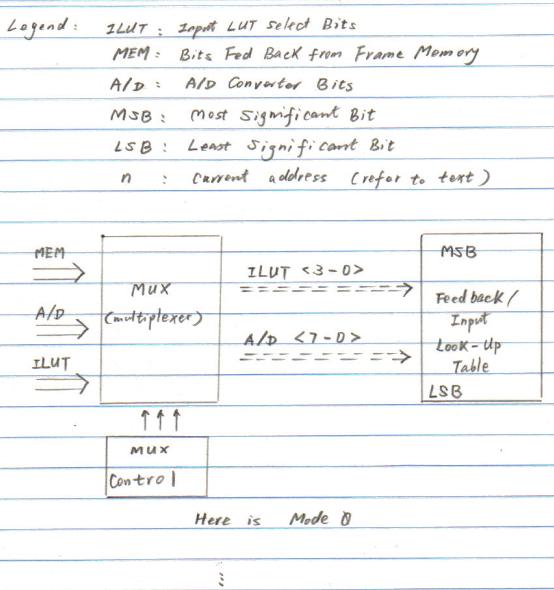 Legend: ILUT: Input LUT Select Bits
MEM: Bits Fed Back from Frame Memory
A/D: A/D Converter Bits
MSB: Most Significant Bit
LSB: Least Significant Bit
n : Current address (refer to text)
MEM
A/D
ILUT
MUX
(multiplexer)
ILUT <3-0>
A/D <7-0>
MSB
Feedback/
Input
Look-Up
Table
LSB
MUX
Control
Here is Mode 0
⋮